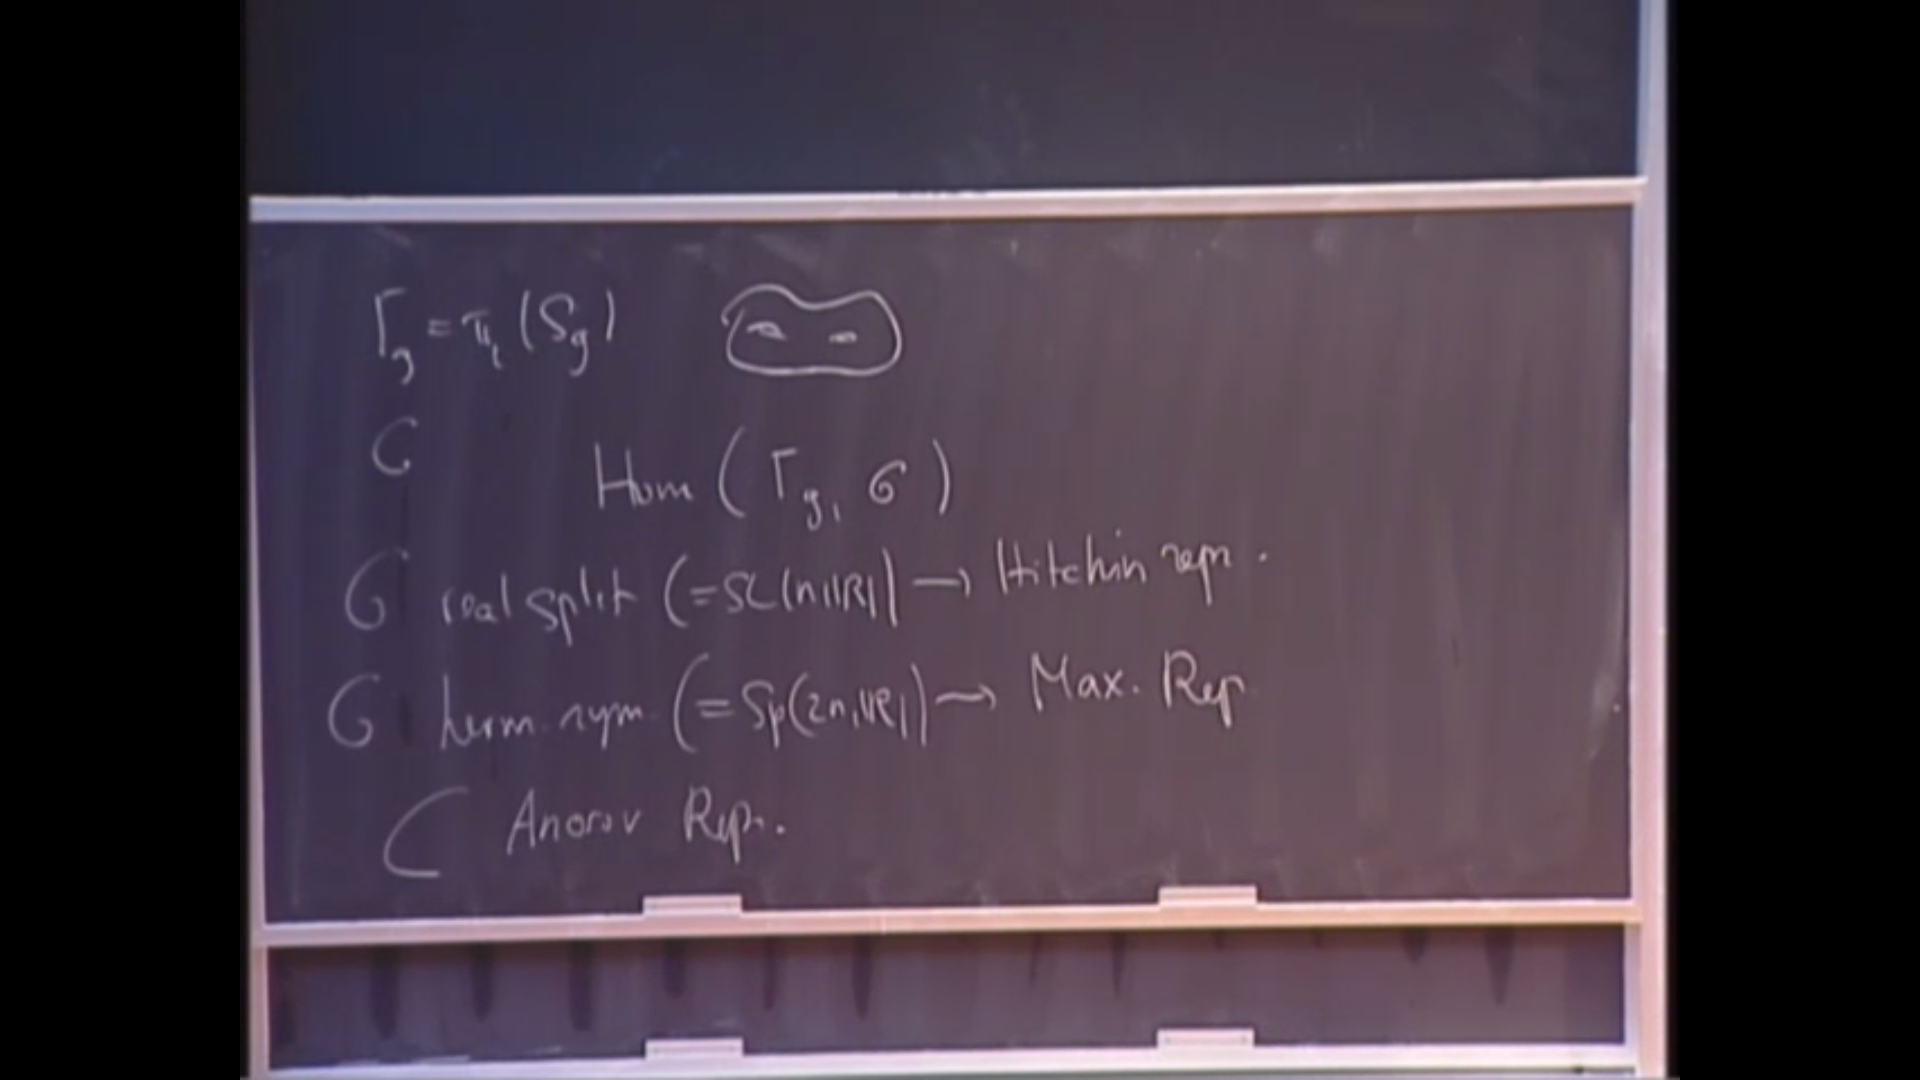 Γ_g = π_1 (S_g)
G
Hom ( Γ_g, G )
G real split (= SL(n,ℝ)) → Hitchin repr.
G herm. sym. (= Sp(2n,ℝ)) → Max. Rep
⊂ Anosov Repr.